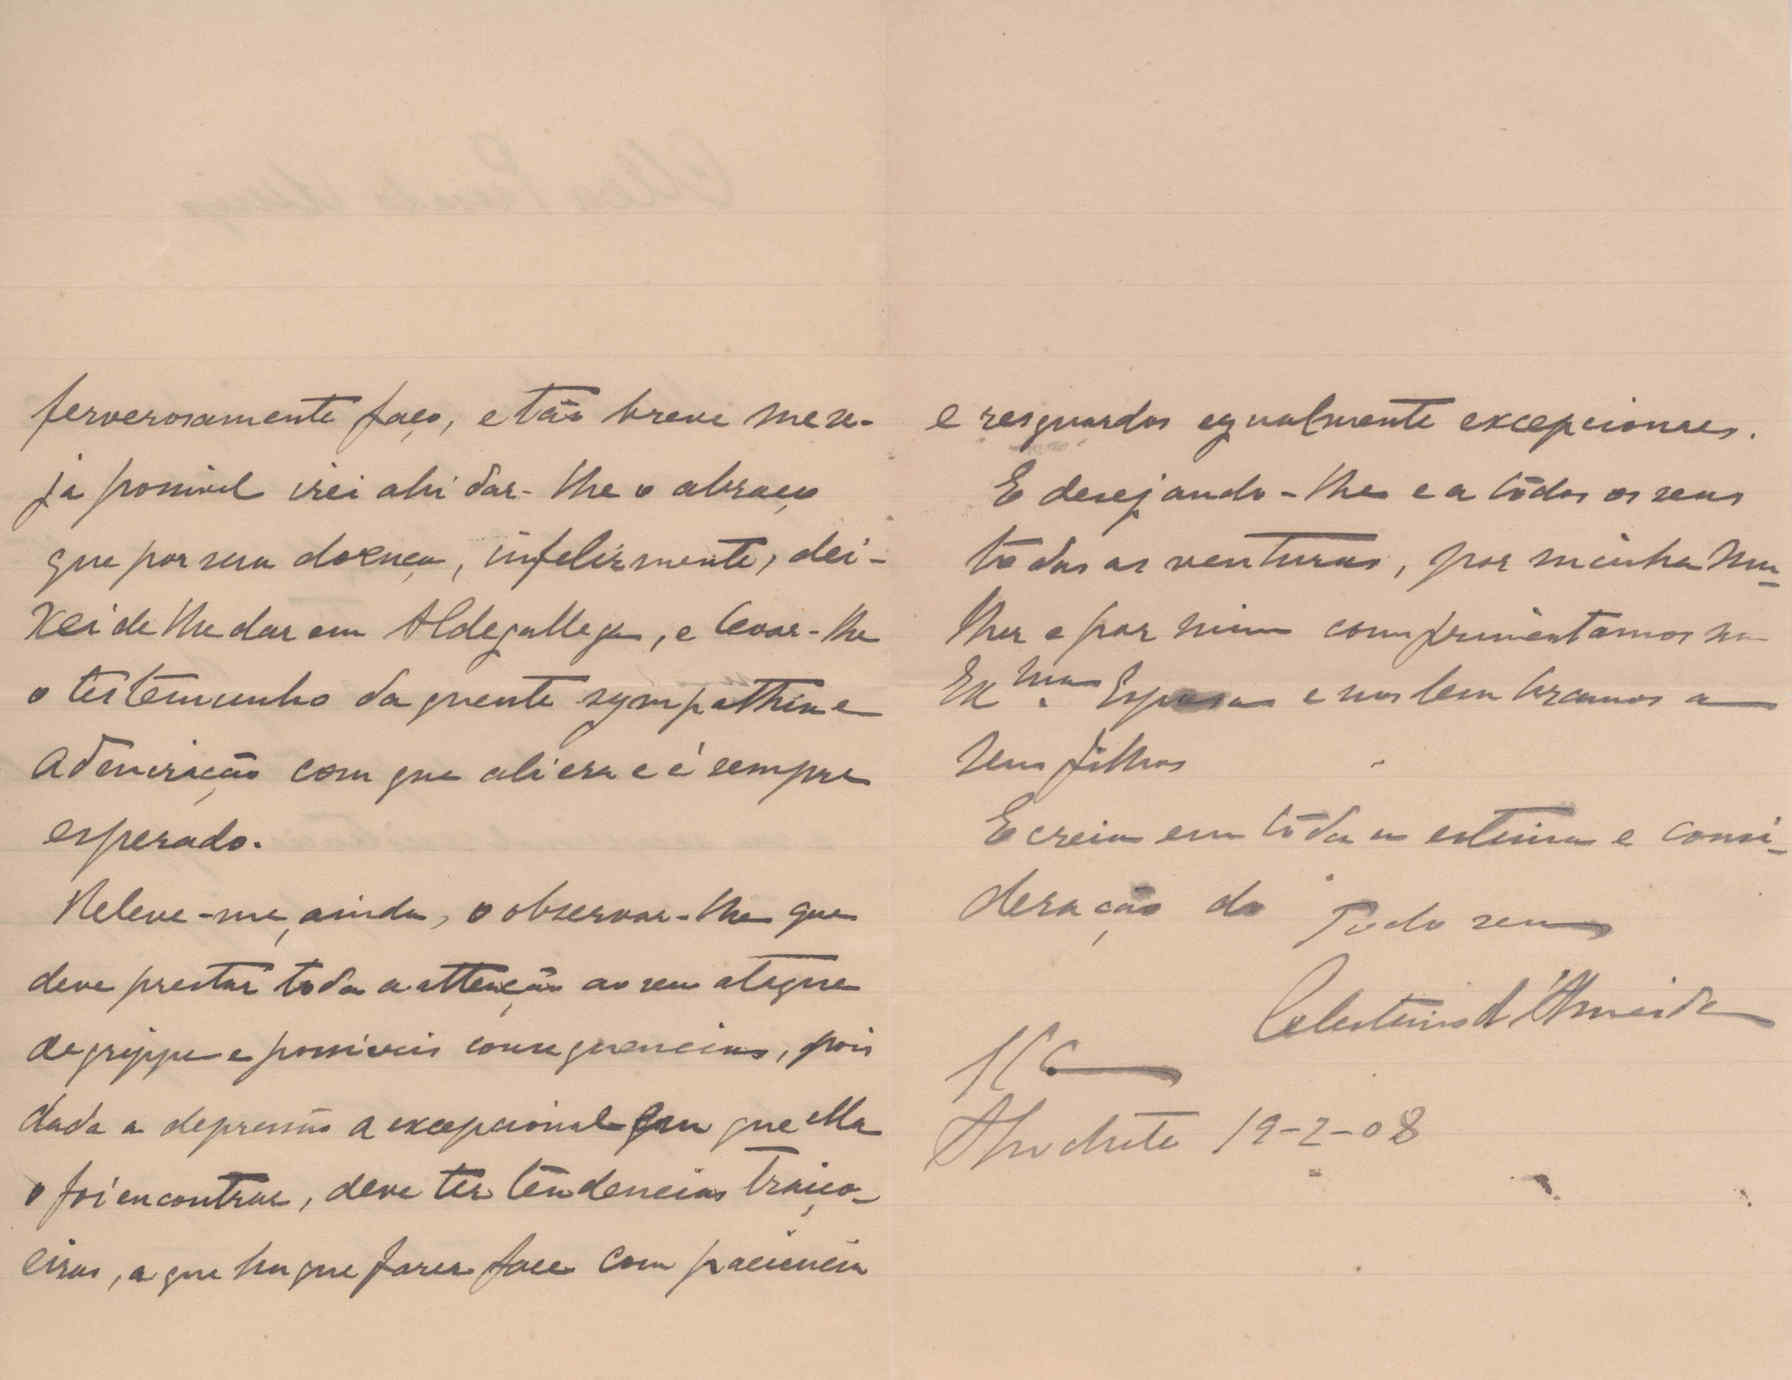 fervorosamente faço, e tão breve me se-
ja possivel irei ahi dar-lhe o abraço
que por sua doença, infelizmente, dei-
xei de lhe dar em Aldegallega, e levar-lhe
o testemunho da quente sympathia e
admiração com que ali era e é sempre
esperado.
Releve-me, ainda, o observar-lhe que
deve prestar toda a attenção ao seu ataque
de grippe e possiveis consequencias, pois
dada a depressão a excepcional em que ella
o foi encontrar, deve ter tendencias traiço-
eiras, a que ha que fazer face com paciencia
e resguardos egualmente excepcionaes.
E desejando-lhe e a tôdos os seus
todas as venturas, por minha mu-
lher e por mim comprimentamos sua
Exma. Esposa e nos lembramos a
seus filhos
E creia em tôda a estima e consi-
deração do Todo seu
Celestino d'Almeida
S/C
Alcochete 19-2-08